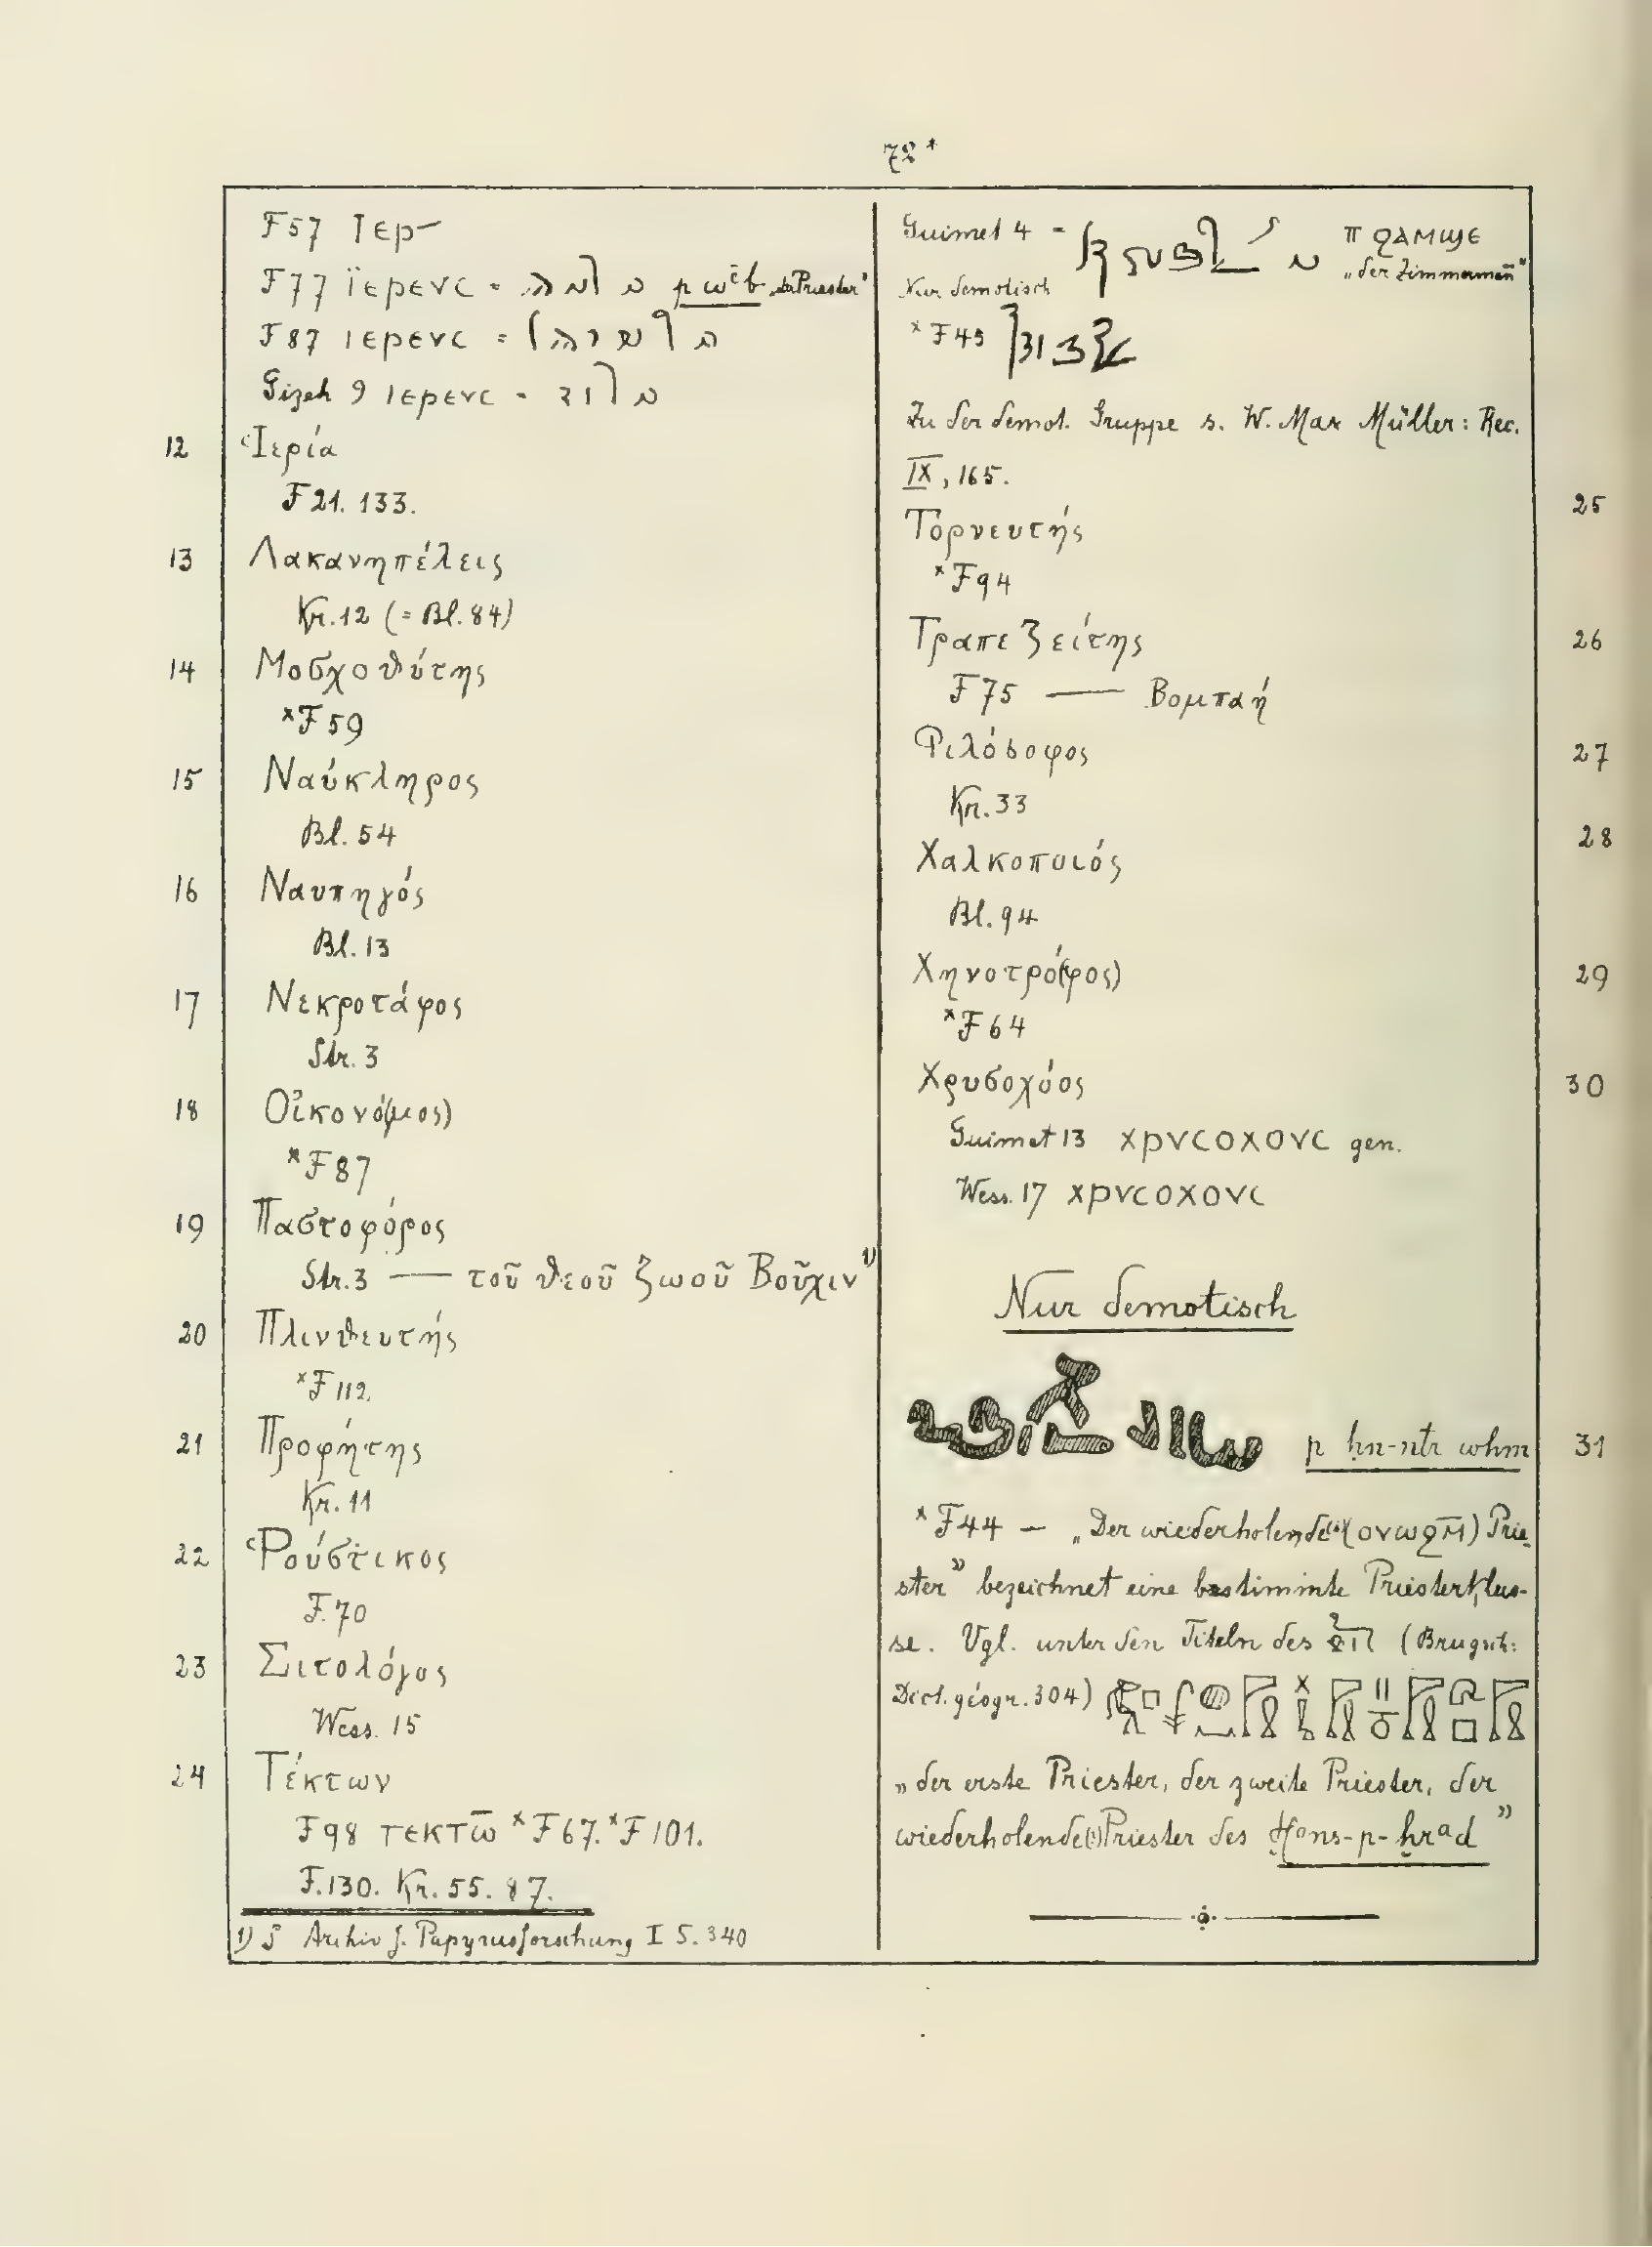 72*
F57 Ιερ
F77 ϊερενς = p wˁb „der Priester"
F87 ιερενς =
Gizeh 9 ιερενς =
12 Ἱερία
F21. 133.
13 Λακανηπέλεις
Kr.12 (= Bl. 84)
14 Μοσχοθύτης
*F59
15 Ναύκληρος
Bl. 54
16 Ναυπηγός
Bl. 13
17 Νεκροτάφος
Str. 3
18 Οἰκονό(μος)
*F87
19 Παστοφόρος
Str.3 — τοῦ θεοῦ ζωοῦ Βοῦχιν¹⁾
20 Πλινθευτής
*F112.
21 Προφήτης
Kr. 11
22 Ῥούστικος
F.70
23 Σιτολόγος
Wess. 15
24 Τέκτων
F98 τεκτω̄ *F67. *F101.
F.130. Kr. 55. 87.
1) S Archiv f. Papyrusforschung I S. 340
Guimet 4 = ⲡ ϩⲁⲙϣⲉ
„der Zimmermann"
Nur demotisch
*F45
Zu der demot. Gruppe s. W. Max Müller: Rec.
IX, 165.
Τορνευτής 25
*F94
Τραπεζείτης 26
F75 — Βομπαή
Φιλόσοφος 27
Kr. 33
Χαλκοποιός 28
Bl. 94
Χηνοτρό(φος) 29
*F64
Χρυσοχόος 30
Guimet 13 χρνςοχονς gen.
Wess. 17 χρνςοχονς
Nur demotisch
p ḥn-ntr wḥm 31
*F44 — „Der wiederholende(?) (ⲟⲩⲱϩⲙ̄) Prie-
ster" bezeichnet eine bestimmte Priesterklas-
se. Vgl. unter den Titeln des (Brugsch:
Dict. géogr. 304)
„der erste Priester, der zweite Priester, der
wiederholende(?) Priester des Ḫons-p-ḫrad"